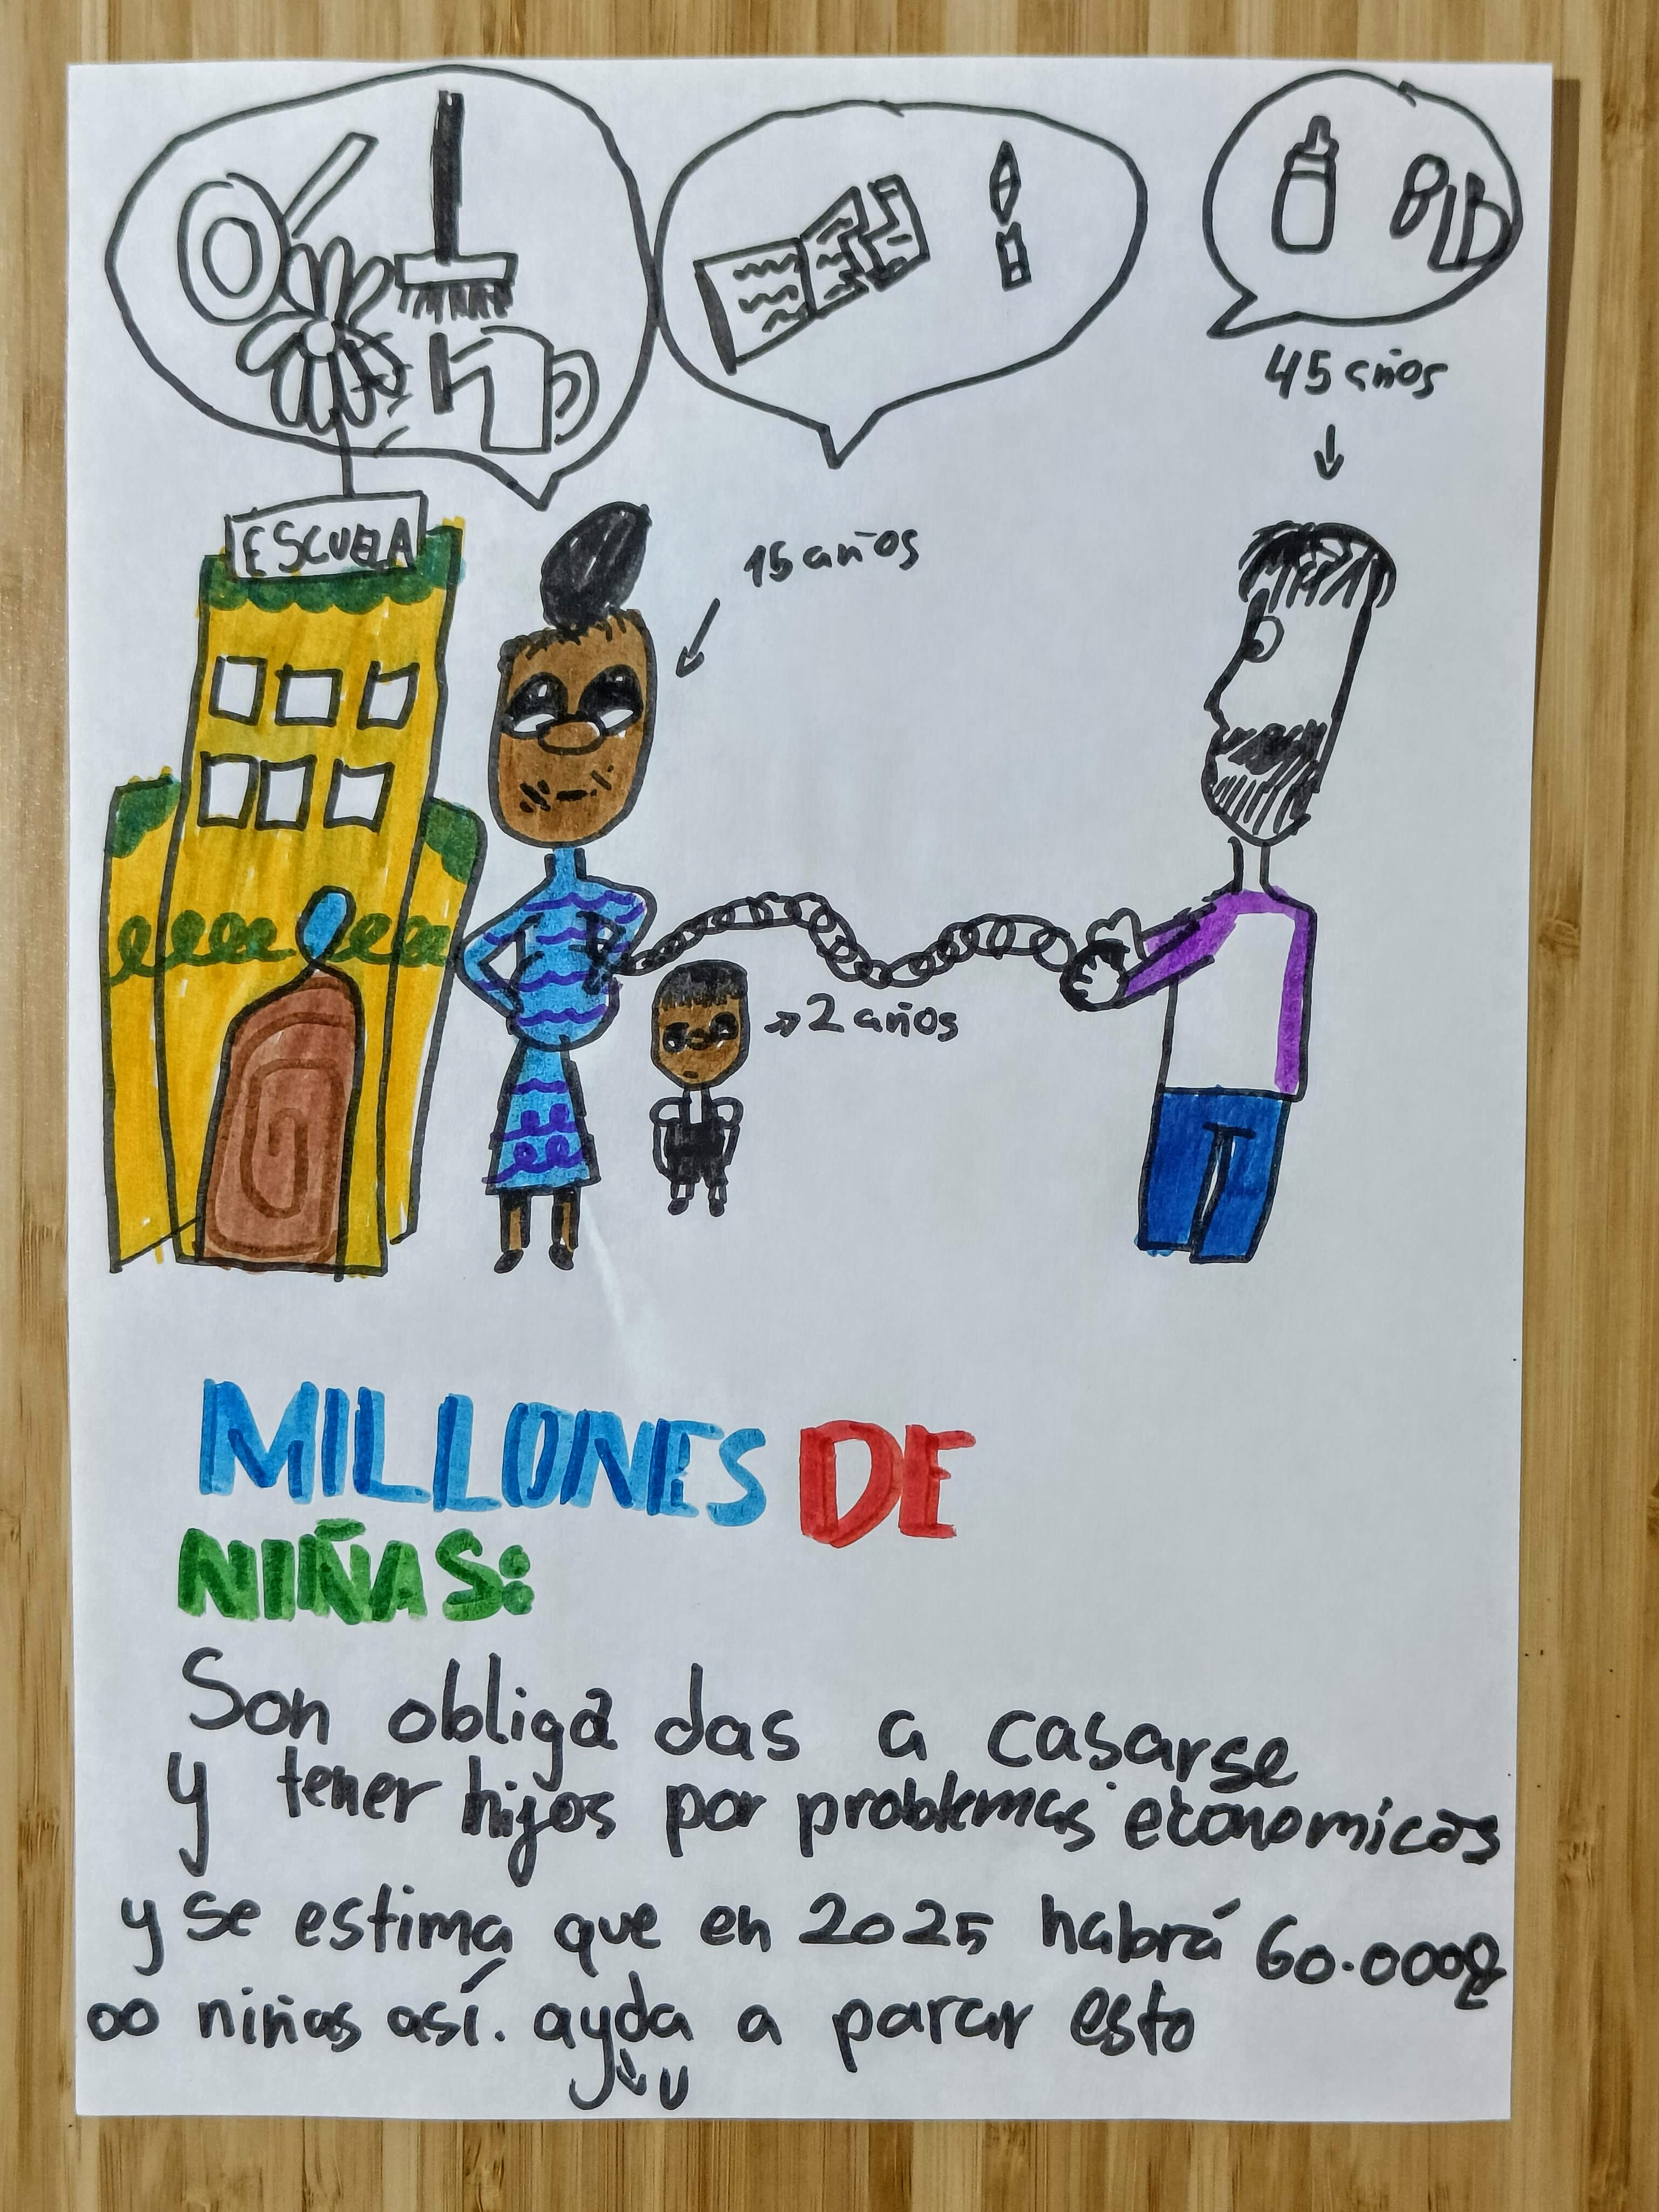 45 años
ESCUELA
15 años
2 años
MILLONES DE
NIÑAS:
Son obligadas a casarse
y tener hijos por problemas económicos
y se estima que en 2025 habrá 60.000
00 niñas así. ayda a parar esto
u